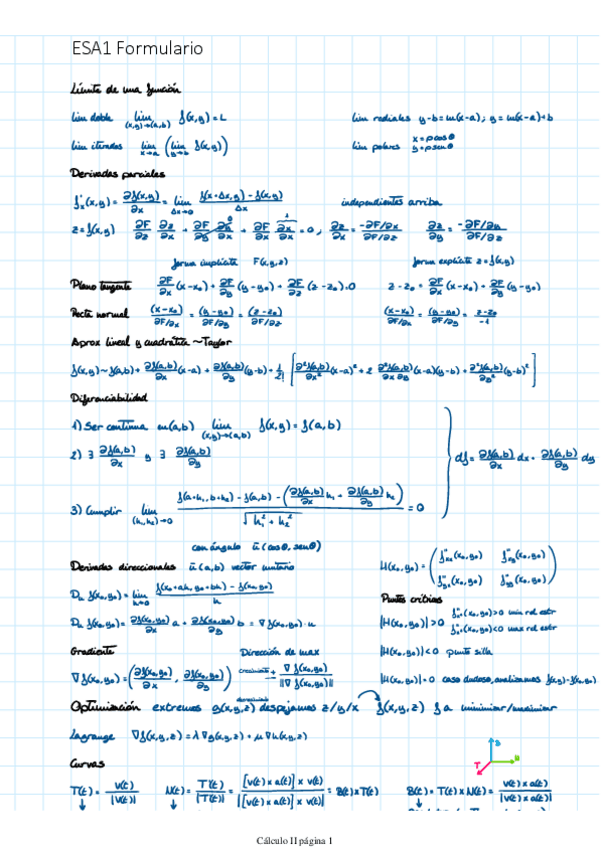 ESA1 Formulario
Límite de una función
lim doble lim (x,y)→(a,b) f(x,y) = L lim radiales y-b = m(x-a) ; y = m(x-a)+b
lim iterados lim x→a ( lim y→b f(x,y) ) lim polares x = ρ cos θ y = ρ sen θ
Derivadas parciales
f'x(x,y) = ∂f(x,y)/∂x = lim Δx→0 f(x+Δx,y) - f(x,y) / Δx independientes arriba
z = f(x,y) ∂F/∂z ∂z/∂x + ∂F/∂y ∂y/∂x 0 + ∂F/∂x ∂x/∂x 1 = 0 , ∂z/∂x = -∂F/∂x / ∂F/∂z ∂z/∂y = -∂F/∂y / ∂F/∂z
forma implícita F(x,y,z) forma explícita z = f(x,y)
Plano tangente ∂F/∂x (x-x₀) + ∂F/∂y (y-y₀) + ∂F/∂z (z-z₀) = 0 z-z₀ = ∂F/∂x (x-x₀) + ∂F/∂y (y-y₀)
Recta normal (x-x₀)/∂F/∂x = (y-y₀)/∂F/∂y = (z-z₀)/∂F/∂z (x-x₀)/∂F/∂x = (y-y₀)/∂F/∂y = z-z₀/-1
Aprox lineal y cuadrática ~ Taylor
f(x,y) ~ f(a,b) + ∂f(a,b)/∂x (x-a) + ∂f(a,b)/∂y (y-b) + 1/2! [ ∂²f(a,b)/∂x² (x-a)² + 2 ∂²f(a,b)/∂x∂y (x-a)(y-b) + ∂²f(a,b)/∂y² (y-b)² ]
Diferenciabilidad
1) Ser continua en (a,b) lim (x,y)→(a,b) f(x,y) = f(a,b)
2) ∃ ∂f(a,b)/∂x y ∃ ∂f(a,b)/∂y df = ∂f(a,b)/∂x dx + ∂f(a,b)/∂y dy
3) Cumplir lim (h₁,h₂)→0 f(a+h₁,b+h₂) - f(a,b) - ( ∂f(a,b)/∂x h₁ + ∂f(a,b)/∂y h₂ ) / √h₁² + h₂² = 0
con ángulo ū (cos θ, sen θ)
Derivadas direccionales ū (a,b) vector unitario H(x₀,y₀) = ( f''xx(x₀,y₀) f''xy(x₀,y₀) f''yx(x₀,y₀) f''yy(x₀,y₀) )
Du f(x₀,y₀) = lim h→0 f(x₀+ah, y₀+bh) - f(x₀,y₀) / h Puntos críticos
Du f(x₀,y₀) = ∂f(x₀,y₀)/∂x a + ∂f(x₀,y₀)/∂y b = ∇f(x₀,y₀)·u |H(x₀,y₀)| > 0 f''xx(x₀,y₀) > 0 min rel estr f''xx(x₀,y₀) < 0 max rel estr
Gradiente Dirección de max |H(x₀,y₀)| < 0 punto silla
∇f(x₀,y₀) = ( ∂f(x₀,y₀)/∂x , ∂f(x₀,y₀)/∂y ) crecimiento + ∇f(x₀,y₀) / ||∇f(x₀,y₀)|| |H(x₀,y₀)| = 0 caso dudoso, analizamos f(x,y)-f(x₀,y₀)
Optimización extremos g(x,y,z) despejamos z/y/x f(x,y,z) f a minimizar/maximizar
Lagrange ∇f(x,y,z) = λ∇g(x,y,z) + μ∇h(x,y,z)
Curvas
B
T
N
T(t) = v(t)/|v(t)| N(t) = T'(t)/|T'(t)| = [v(t) x a(t)] x v(t) / |[v(t) x a(t)] x v(t)| = B(t) x T(t) B(t) = T(t) x N(t) = v(t) x a(t) / |v(t) x a(t)|
Cálculo II página 1